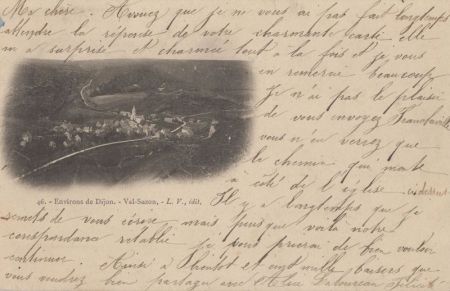 Ma chère. Avouez que je ne vous ai pas fait longtemps
attendre la réponse de votre charmante carte elle
m'a surprise et charmée tout à la fois et je vous
en remercie beaucoup
Je n'ai pas le plaisir
de vous envoyer
vous n'en verrez que
le chemin qui monte
à côté de l'église
46. - Environs de Dijon. - Val-Suzon. - L. V., édit.
Il y a longtemps que je
de vous écrire, mais puisque voilà notre
correspondance rétablie je vous prierai de bien vouloir
continuer. Ainsi à bientôt et vingt mille baisers que
vous voudrez bien partager avec Alice